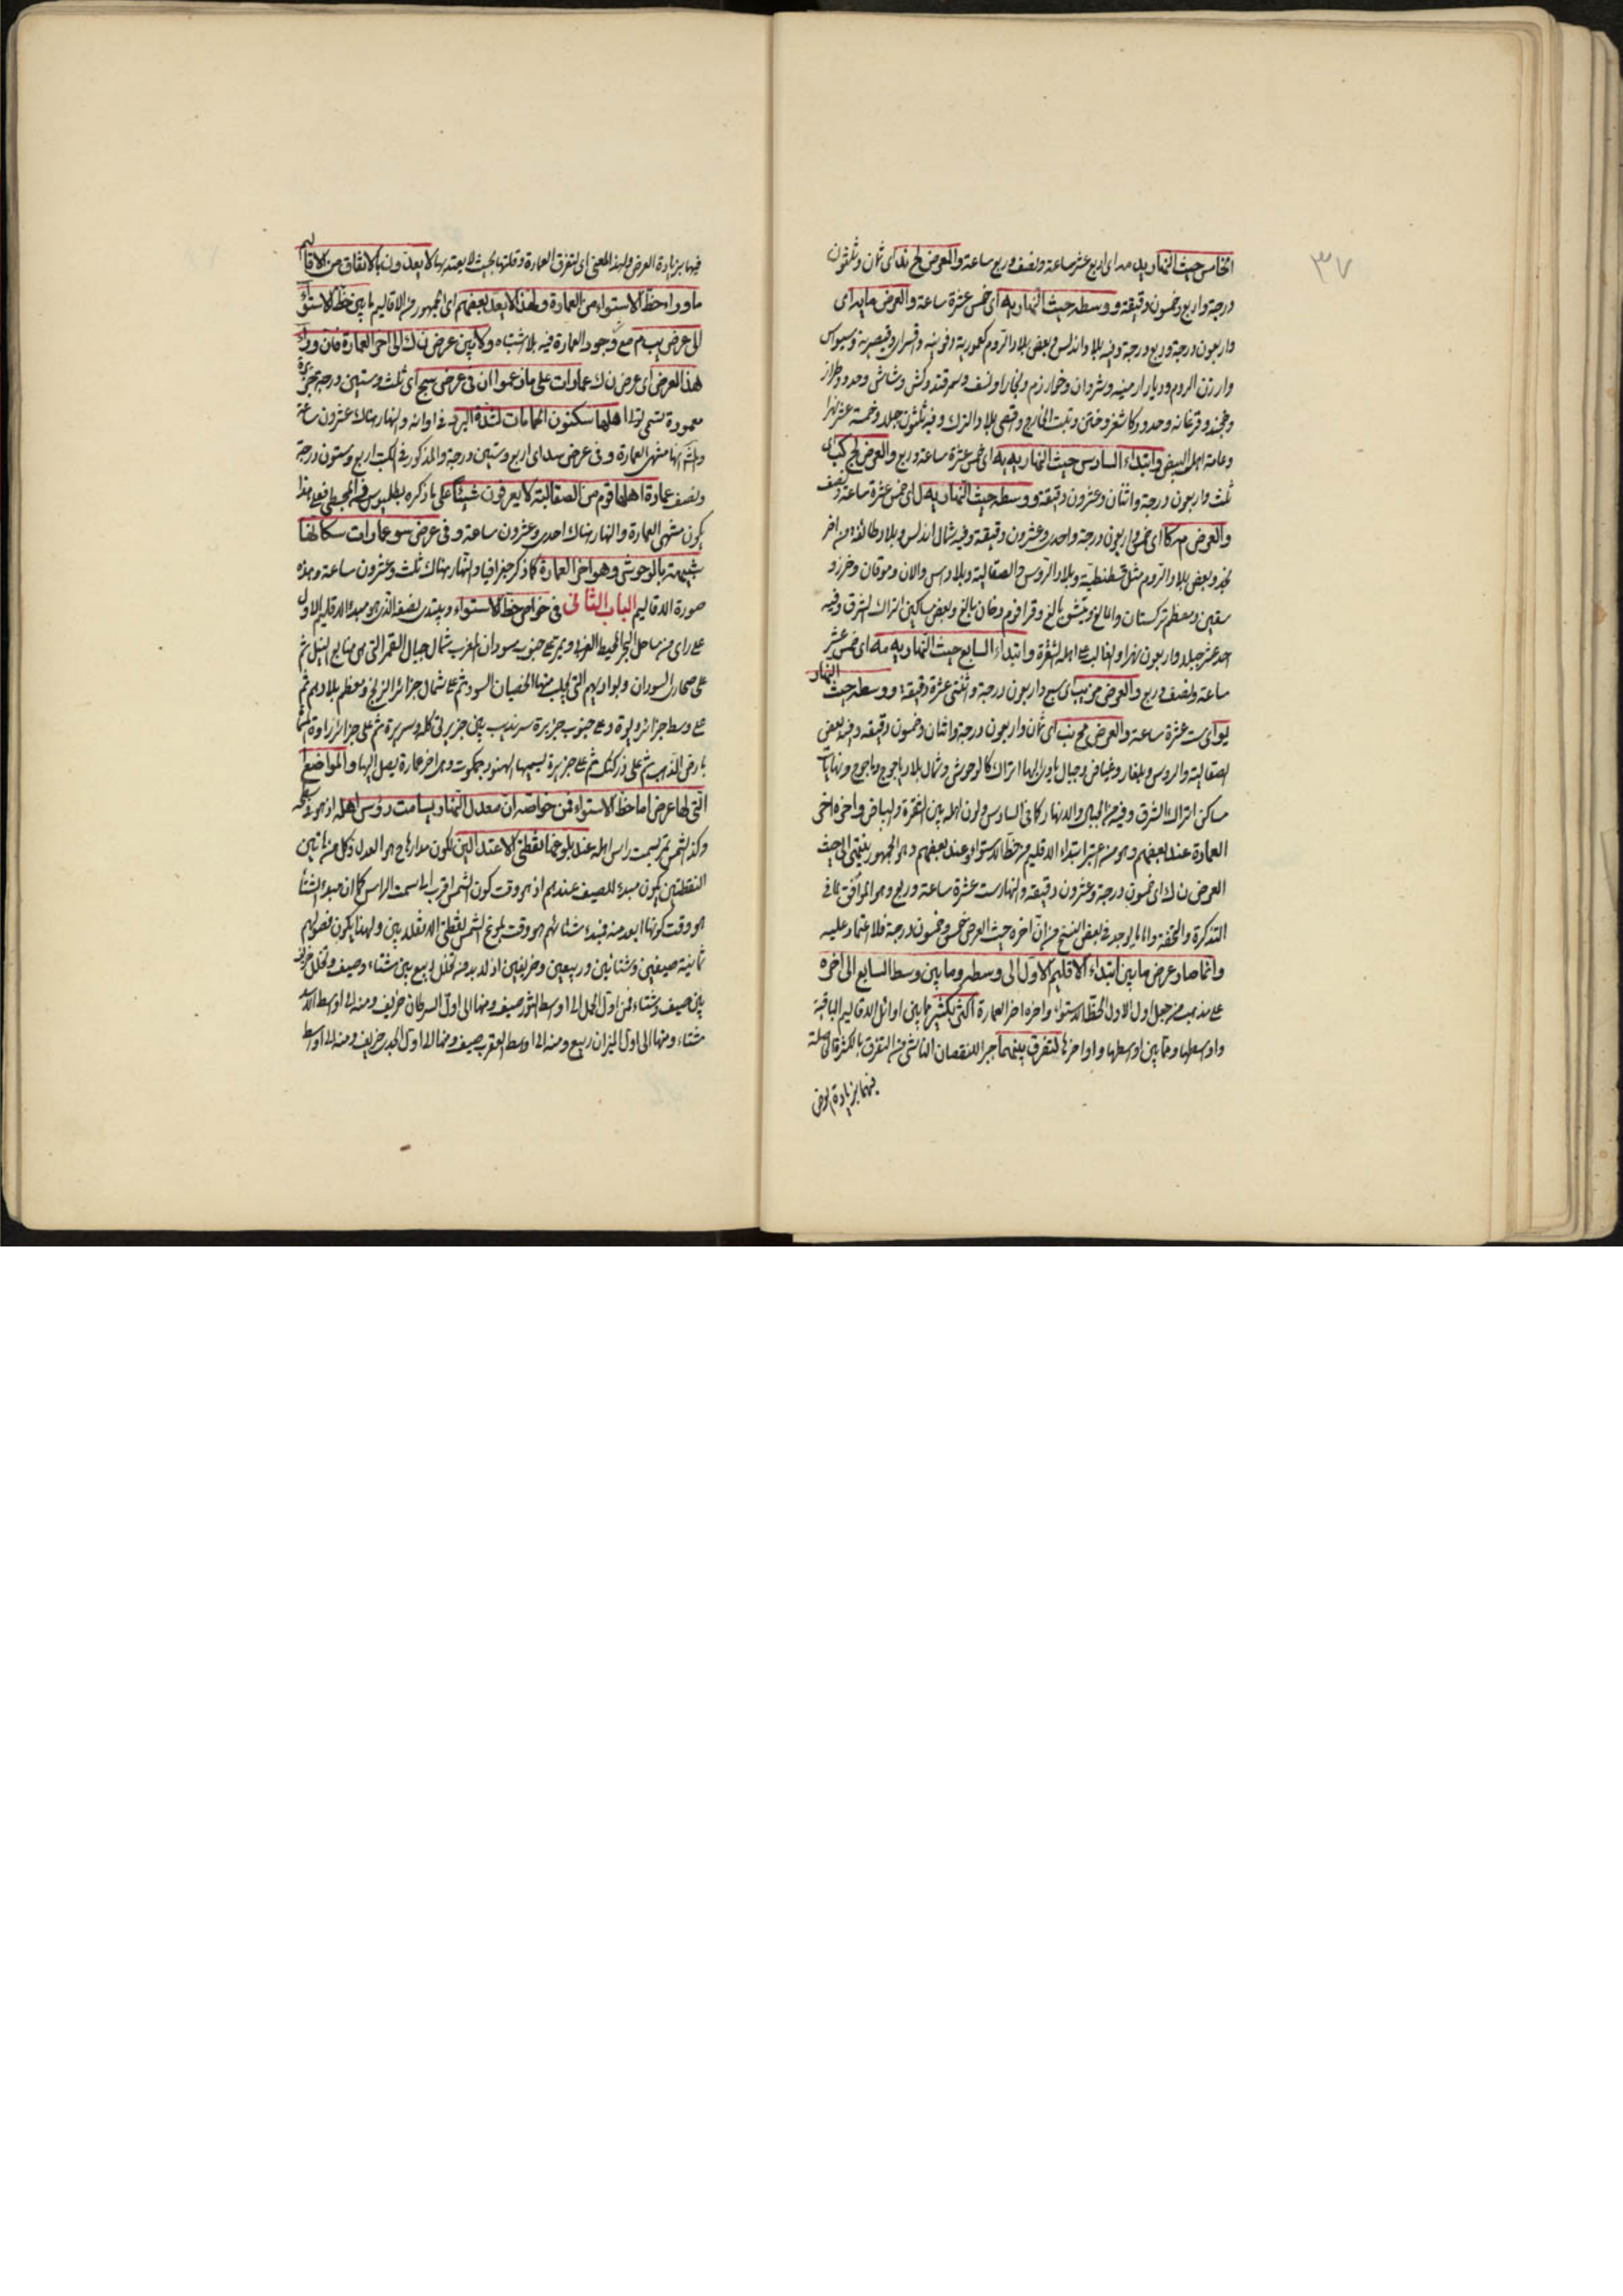 ٣٧
الخامس حيث النهار يد مه اى اربع عشر ساعة ونصف وربع ساعة والعرض لح ند اى ثمان وثلثون
درجة واربع وخمسون دقيقة ووسطه حيث النهار يه اى خمس عشرة ساعة والعرض ما يه اى
واربعون درجة وربع درجة وفيه بلاد اندلس وبعض بلاد الروم كعمورية وقونية واقسراى وقيصرية وسيواس
وارزن الروم وديار ارمينيه وشروان وخوارزم وبخارا ونسف وسمرقند وكش وشاش وحدود طراز
وخجند وفرغانه وحدود كاشغر وختن وتبت الخارج واقصى بلاد الترك وفيه ثلثون جبلا وخمسة عشر نهرا
وعامة اهله البيض وابتداء السادس حيث النهار يه يه اى خمس عشرة ساعة وربع والعرض مج كب اى
ثلث واربعون درجة واثنان وعشرون دقيقة ووسطه حيث النهار يه ل اى خمس عشرة ساعة ونصف
والعرض مه كا اى خمس واربعون درجة واحدى وعشرون دقيقة وفيه شمال اندلس وبلاد طائفة من
وبعض بلاد الروم مثل قسطنطنية وبلاد الروس والصقالبة وبلاد اس والان وموقان وخزر و
سقين ومعظم تركستان والمالغ وبيش بالغ وقراقوم وخان بالغ وبعض مساكن اتراك الشرق وفيه
احد عشر جبلا واربعون نهرا والغالب على اهله الشقرة وابتداء السابع حيث النهار يه مه اى خمس عشر
ساعة ونصف وربع والعرض مز يب اى سبع واربعون درجة واثنتى عشرة دقيقة ووسطه حيث النهار
يو اى ست عشرة ساعة والعرض مح نب اى ثمان واربعون درجة واثنان وخمسون دقيقة وفيه بعض
الصقالبة والروس وبلغار وغياض وجبال ياوى اليها اتراك كالوحوش وشمال بلاد ياجوج وماجوج ونهايات
مساكن اتراك الشرق وفيه من الجبال والانهار كما فى السادس ولون اهله بين الشقرة والبياض واخره اخر
العمارة عند بعضهم وهو من اعتبر ابتداء الاقليم من خط الاستواء وعند بعضهم وهو الجمهور ينتهى الى حيث
العرض ن ك اى خمسون درجة وعشرون دقيقة والنهار ست عشرة ساعة وربع وهو الموافق لما فى
التذكرة والتحفة واما ما يوجد فى بعض النسخ من ان اخره حيث العرض خمس وخمسون درجة فلا اعتماد عليه
وانما صار عرض ما بين ابتداء الاقليم الاول الى وسطه وما بين وسط السابع الى اخره
على مذهب من جعل اول الاول خط الاستواء واخره اخر العمارة اكثر بكثير مما بين اوائل الاقاليم الباقية
واوسطها ومما بين اوسطها واواخرها لتفرق بينهما جبرا للنقصان الناشى من التفرق بالكثرة الحاصلة
فيهما بزيادة العرض
فيها بزيادة العرض ولهذا المعنى اى لتفرق العمارة وقلتها بحيث لا يعتد بها لا يعدون بالاتفاق من الاقاليم
ما وراء خط الاستواء من العمارة ولهذا لا يعد بعضهم اى الجمهور من الاقاليم ما بين خط الاستواء
الى عرض يب م مع وجود العمارة فيه بلا اشتباه ولا بين عرض ن ك الى اخر العمارة فان وراء
هذا العرض اى عرض ن ك عمارات على ما زعموا ان فى عرض سج اى ثلث وستين درجة جزيرة
معمورة تسمى تولى اهلها يسكنون الحمامات لشدة البرد فى اوانه والنهار هناك عشرون ساعة
منتهى العمارة وفى عرض سد اى اربع وستين درجة والمذكور فى الكتب اربع وستون درجة
ونصف عمارة اهلها قوم من الصقالبة لا يعرفون شيئا على ما ذكره بطلميوس فى المجسطى فعلى هذا
يكون منتهى العمارة والنهار هناك احدى وعشرون ساعة وفى عرض سو عمارات سكانها
شبيهة بالوحوش وهو اخر العمارة كما ذكر جغرافيا والنهار هناك ثلث وعشرون ساعة وهذه
صورة الاقاليم الباب الثانى فى خواص خط الاستواء ويبتدى نصفه الذى هو مبدء الاقليم الاول
على راى من ساحل البحر المحيط الغربى ويمر على جنوب سودان المغرب شمال جبال القمر التى هى منابع النيل ثم
على صحارى السودان وبواديهم التى يجلب منها الخصيان السود ثم على شمال جزائر الزنج ومعظم بلادهم ثم
على وسط جزائر ديوة وعلى جنوب جزيرة سرنديب بين جزيرتى كله وسريرة ثم على جزائر زاوة المسماة
بارض الذهب ثم على كنك ثم على جزيرة يسميها الهنود جمكوت وهى اخر عمارة يصل اليها والمواضع
التى لها عرض اما خط الاستواء فمن خواصه ان معدل النهار يسامت رؤس اهله اذ هو
وكذا الشمس تمر بسمت راس اهله عند بلوغها نقطتى الاعتدالين لكون مدارها ح هو المعدل وكل من هاتين
النقطتين يكون مبدء للصيف عندهم اذ هو وقت كون الشمس اقرب الى سمت الراس كما ان مبدء الشتاء
هو وقت كونها ابعد منه فمبدء شتائهم هو وقت بلوغ الشمس نقطتى الانقلابين ولهذا يكون فصولهم
ثمانية صيفين وشتائين وربيعين وخريفين اذ لا بد من تخلل ربيع بين شتاء وصيف وتخلل خريف
بين صيف وشتاء فمن اول الحمل الى اوسط الثور صيف ومنها الى اول السرطان خريف ومنه الى اوسط الاسد
شتاء ومنها الى اول الميزان ربيع ومنه الى اوسط العقرب صيف ومنها الى اول الجدى خريف ومنه الى اوسط